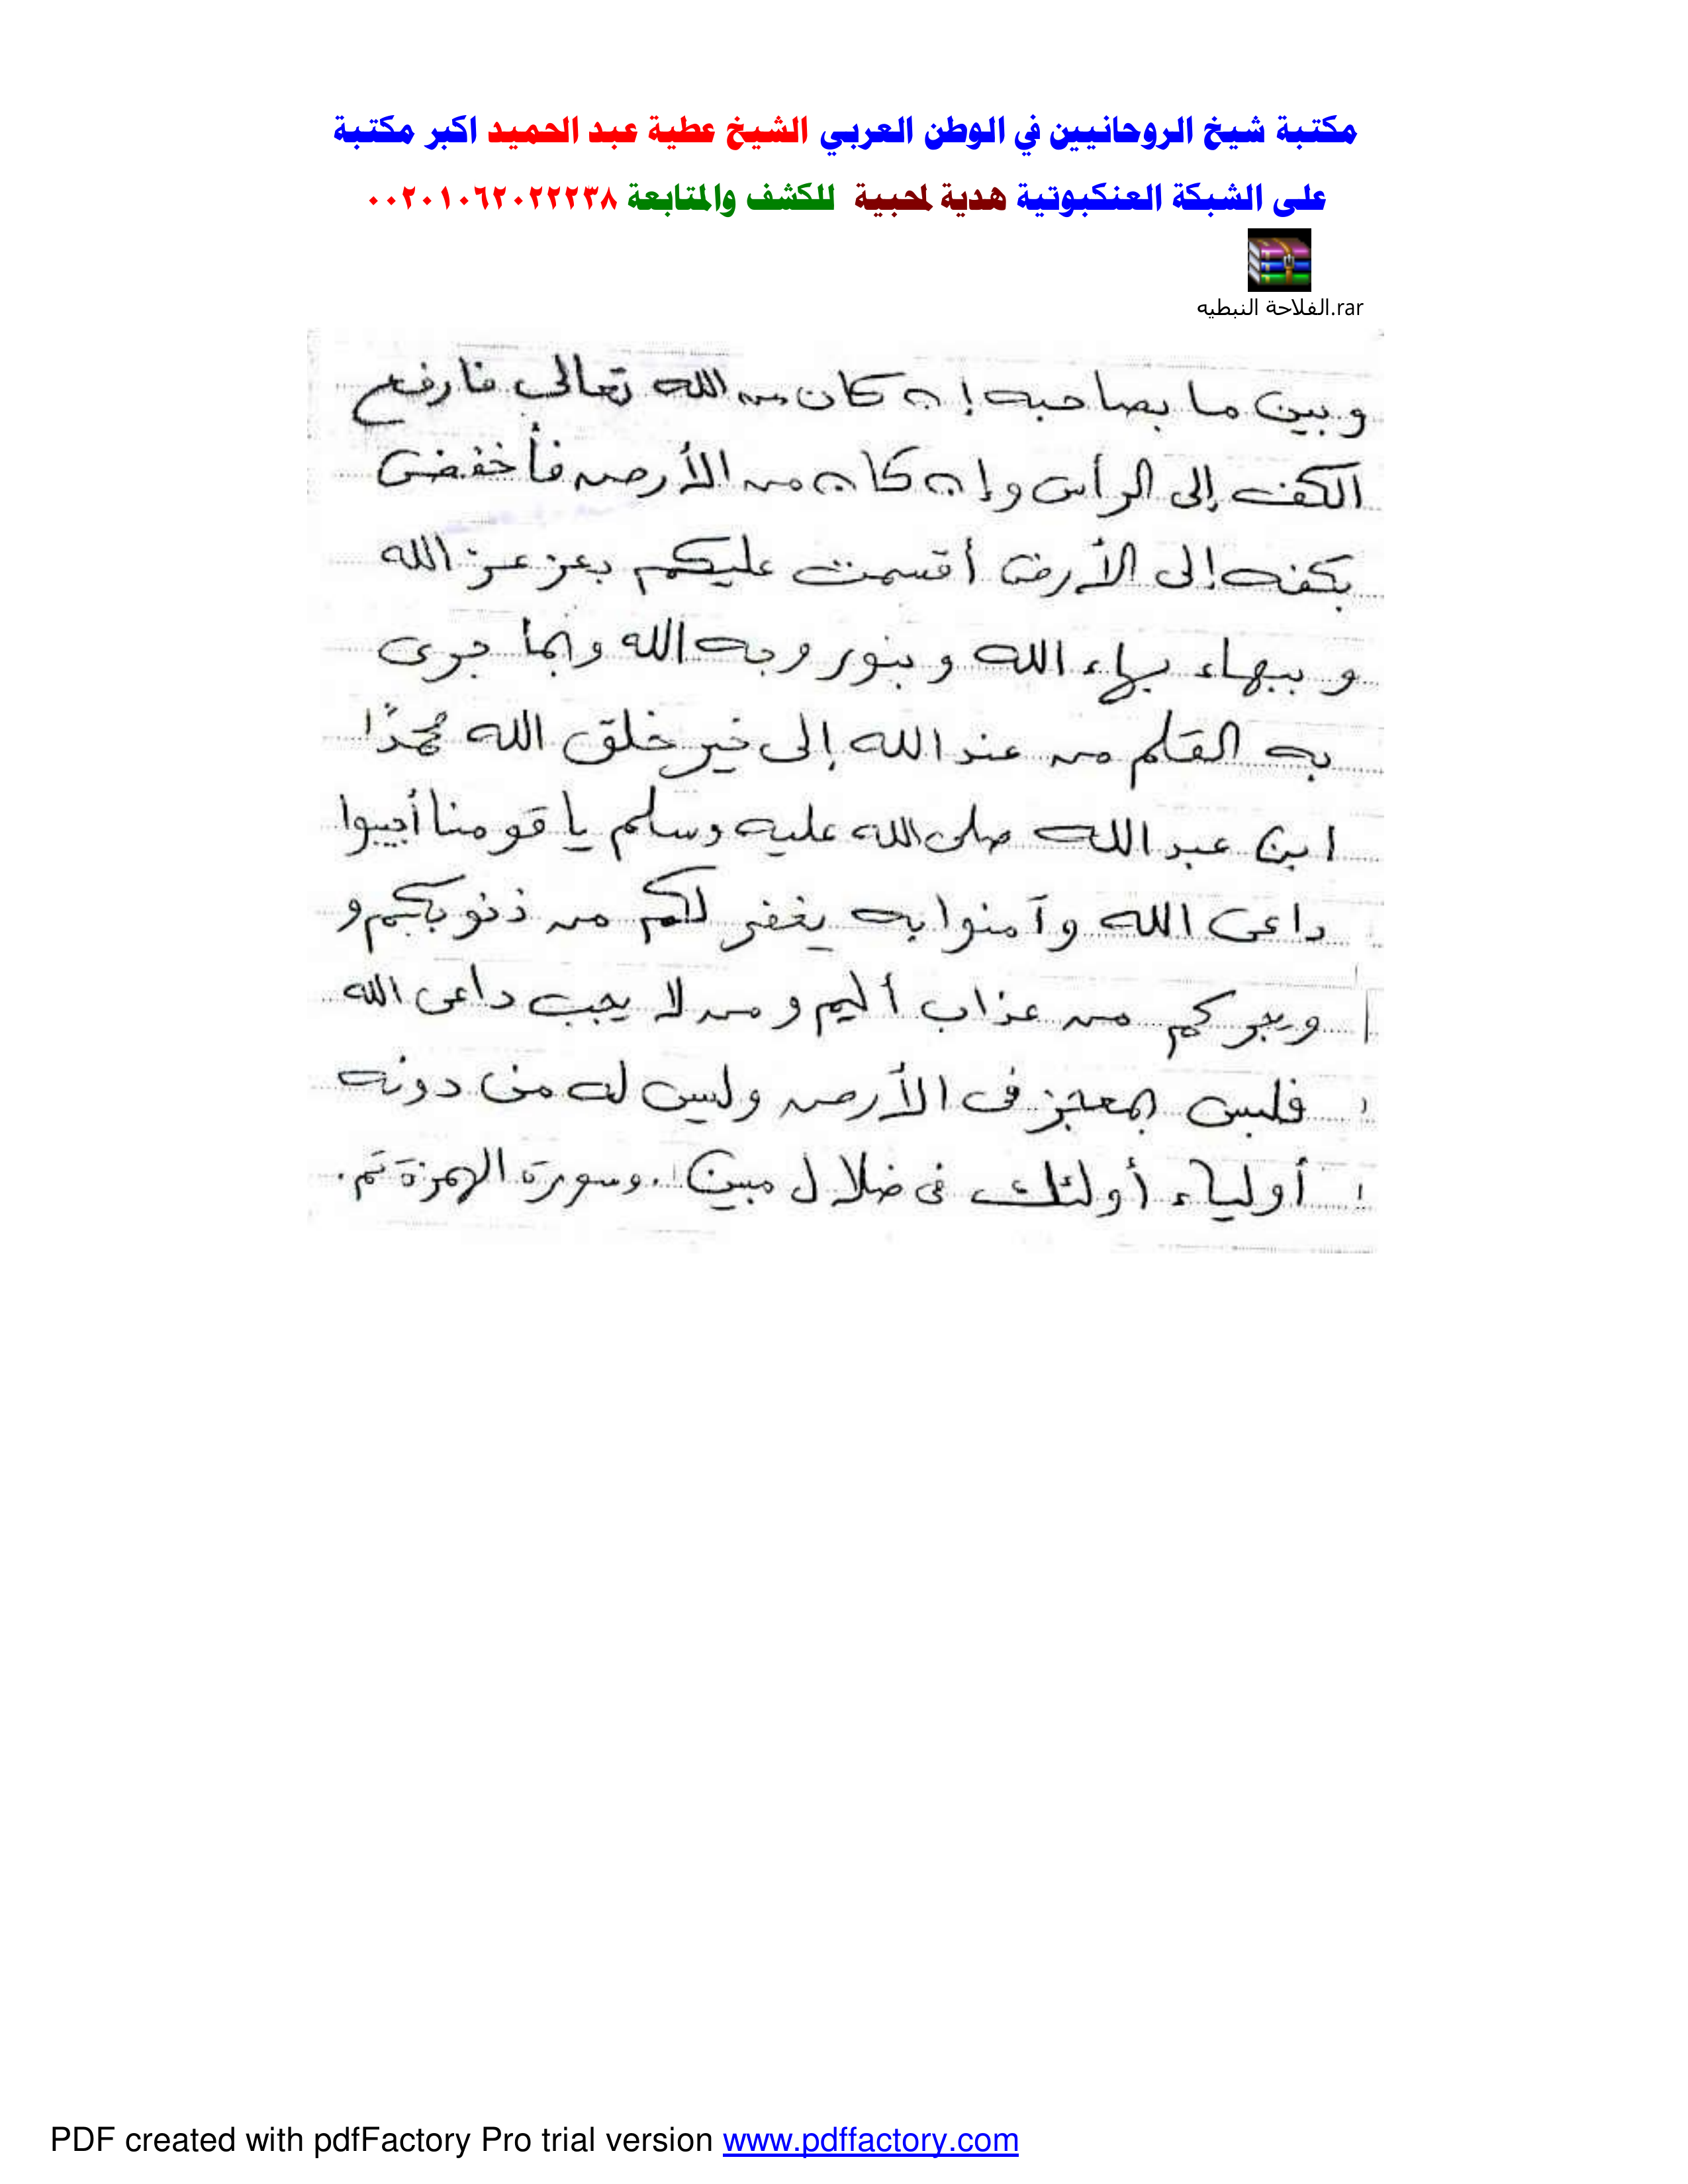 مكتبة شيخ الروحانيين في الوطن العربي الشيخ عطية عبد الحميد اكبر مكتبة
على الشبكة العنكبوتية هدية لمحبية للكشف والمتابعة ٠٠٢٠١٠٦٢٠٢٢٢٣٨
الفلاحة النبطيه.rar
وبين ما بصاحبه إن كان من الله تعالى فارفع
الكف إلى الرأس وإن كان من الأرض فأخفض
بكفه إلى الأرض أقسمت عليكم بعز عز الله
وببهاء بهاء الله وبنور وجه الله وبما جرى
به القلم من عند الله إلى خير خلق الله محمدًا
ابن عبد الله صلى الله عليه وسلم يا قومنا أجيبوا
داعى الله وآمنوا به يغفر لكم من ذنوبكم و
ويجركم من عذاب أليم ومن لا يجب داعى الله
فليس بمعجز فى الأرض وليس له من دونه
أولياء أولئك فى ضلال مبين. وسورة الهمزة تم.
PDF created with pdfFactory Pro trial version www.pdffactory.com